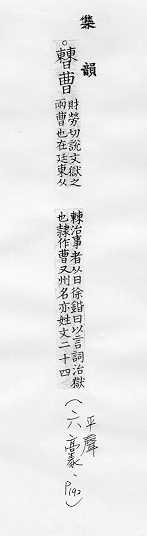 集韻
。𣍘曹
財勞切說文獄之
兩曹也在廷東从
㯥治事者从曰徐鍇曰以言詞治獄
也隸作曹又州名亦姓文二十四
平聲
六豪、P192)